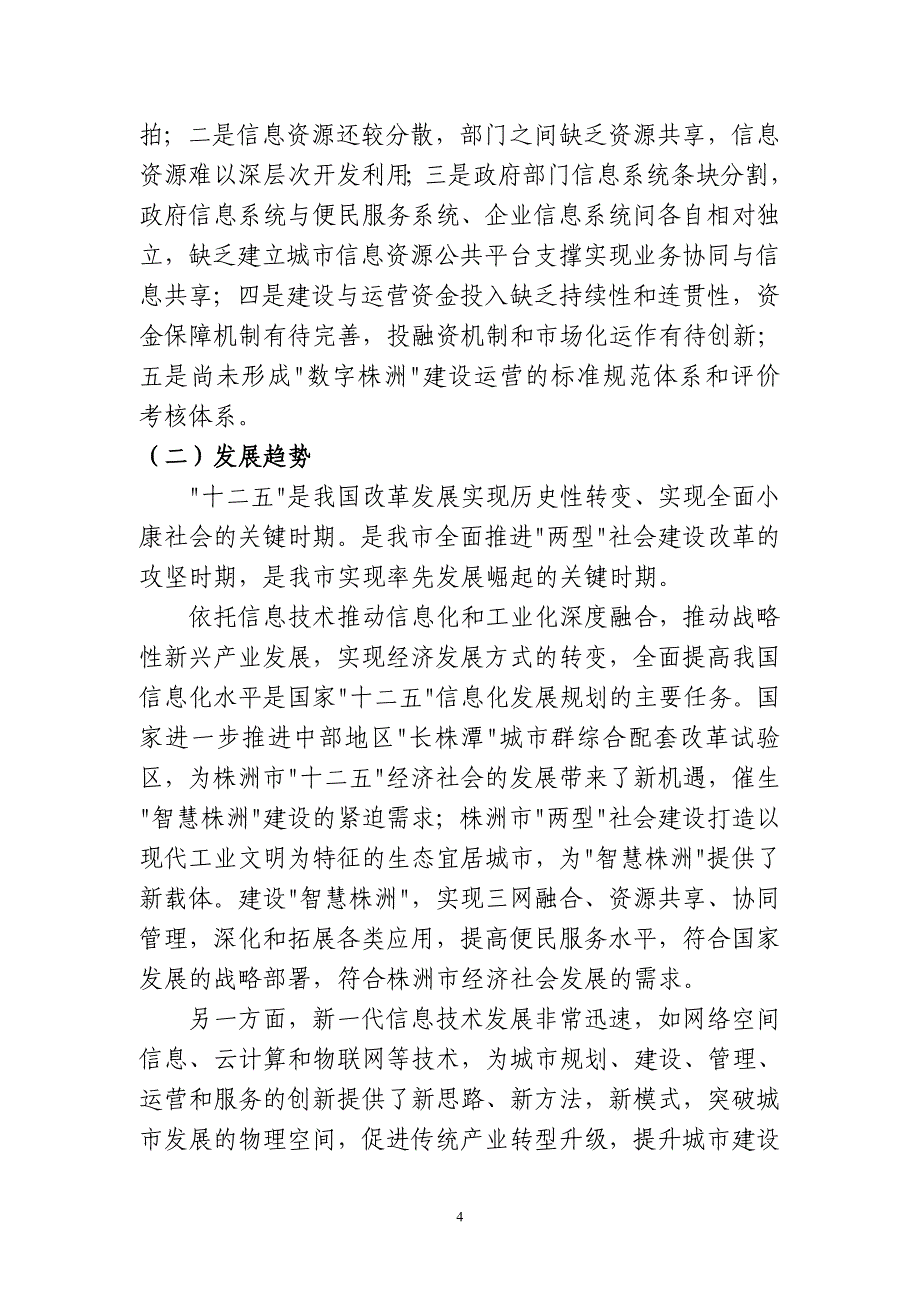 拍；二是信息资源还较分散，部门之间缺乏资源共享，信息
资源难以深层次开发利用；三是政府部门信息系统条块分割，
政府信息系统与便民服务系统、企业信息系统间各自相对独
立，缺乏建立城市信息资源公共平台支撑实现业务协同与信
息共享；四是建设与运营资金投入缺乏持续性和连贯性，资
金保障机制有待完善，投融资机制和市场化运作有待创新；
五是尚未形成"数字株洲"建设运营的标准规范体系和评价
考核体系。
（二）发展趋势
"十二五"是我国改革发展实现历史性转变、实现全面小
康社会的关键时期。是我市全面推进"两型"社会建设改革的
攻坚时期，是我市实现率先发展崛起的关键时期。
依托信息技术推动信息化和工业化深度融合，推动战略
性新兴产业发展，实现经济发展方式的转变，全面提高我国
信息化水平是国家"十二五"信息化发展规划的主要任务。国
家进一步推进中部地区"长株潭"城市群综合配套改革试验
区，为株洲市"十二五"经济社会的发展带来了新机遇，催生
"智慧株洲"建设的紧迫需求；株洲市"两型"社会建设打造以
现代工业文明为特征的生态宜居城市，为"智慧株洲"提供了
新载体。建设"智慧株洲"，实现三网融合、资源共享、协同
管理，深化和拓展各类应用，提高便民服务水平，符合国家
发展的战略部署，符合株洲市经济社会发展的需求。
另一方面，新一代信息技术发展非常迅速，如网络空间
信息、云计算和物联网等技术，为城市规划、建设、管理、
运营和服务的创新提供了新思路、新方法，新模式，突破城
市发展的物理空间，促进传统产业转型升级，提升城市建设
4